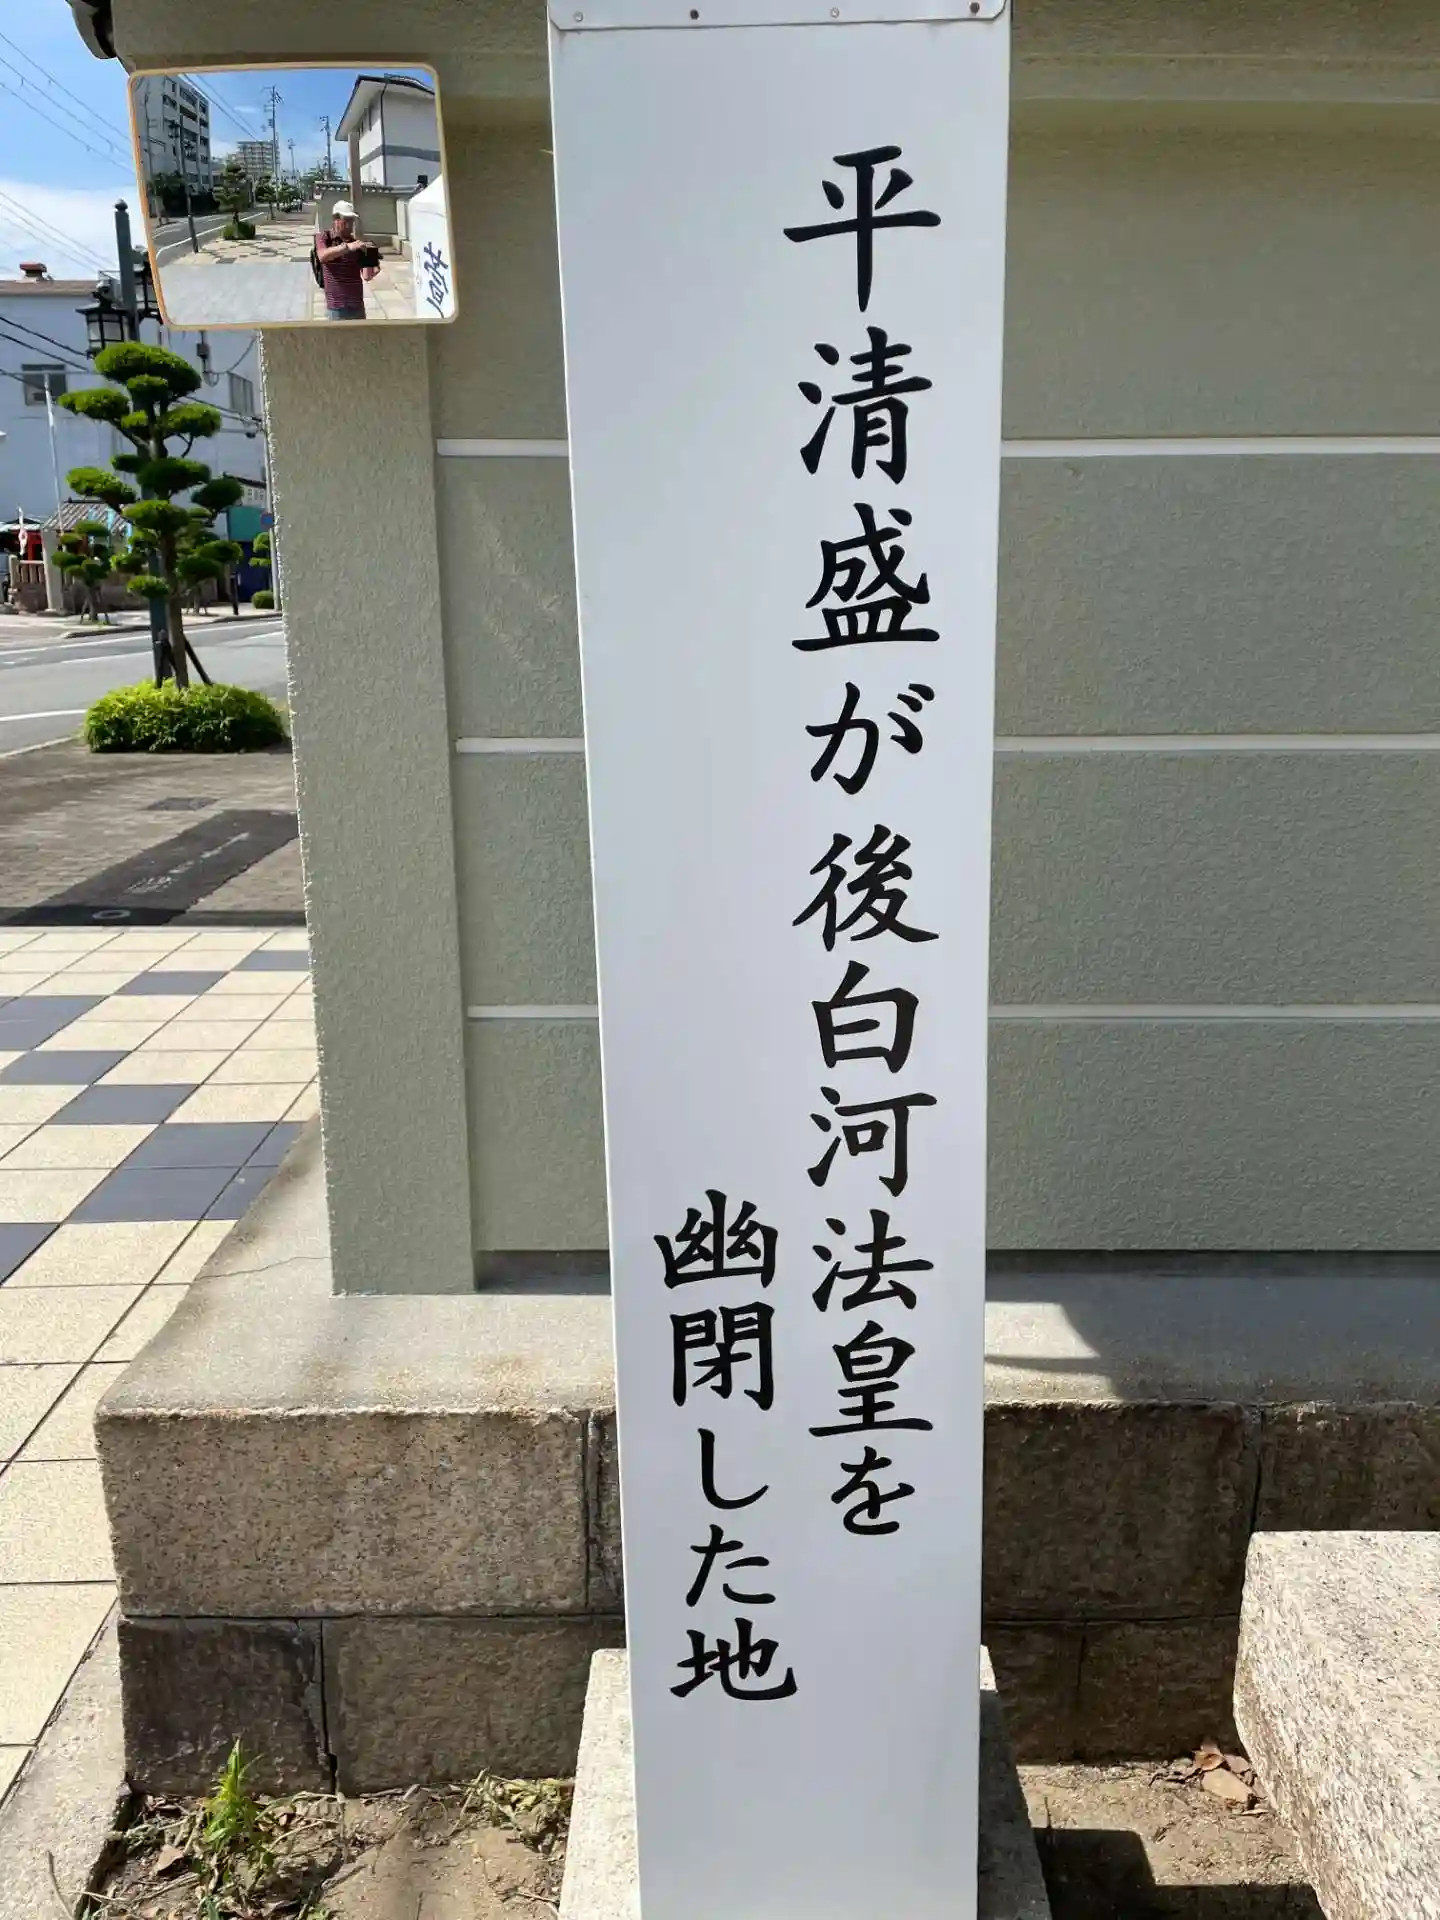 平清盛が後白河法皇を
幽閉した地